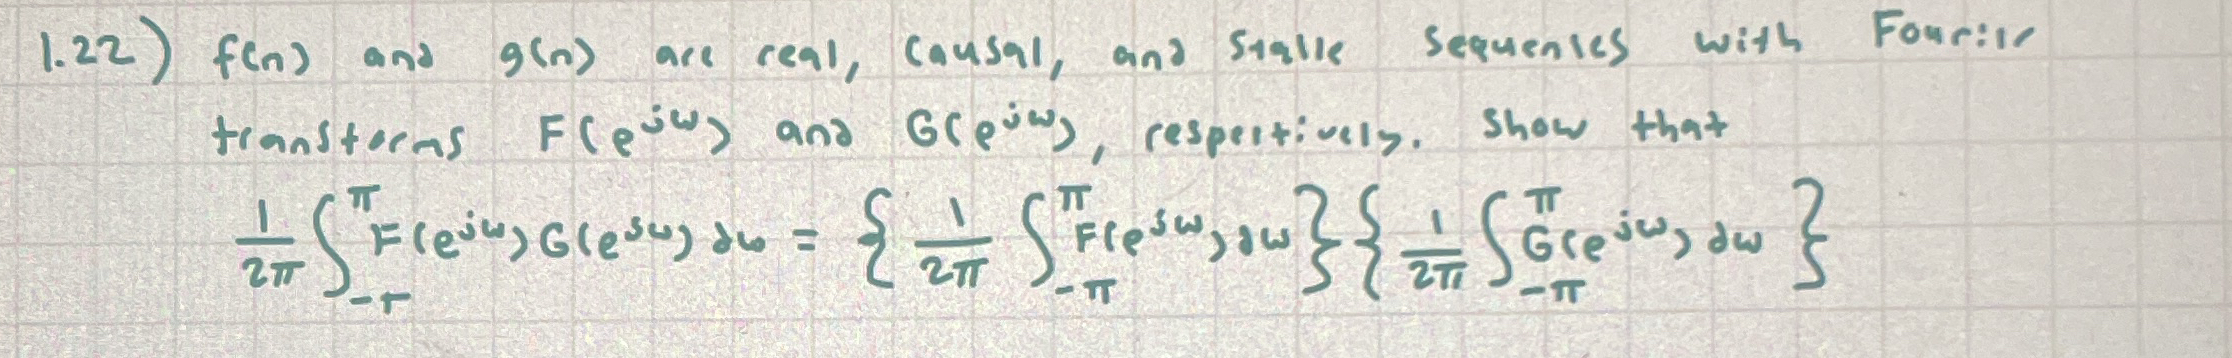 1.22) f(n) and g(n) are real, causal, and stable sequences with Fourier
transforms F(e^{jω}) and G(e^{jω}), respectively. Show that
\frac{1}{2π} ∫_{-π}^{π} F(e^{jω}) G(e^{jω}) dω = { \frac{1}{2π} ∫_{-π}^{π} F(e^{jω}) dω } { \frac{1}{2π} ∫_{-π}^{π} G(e^{jω}) dω }